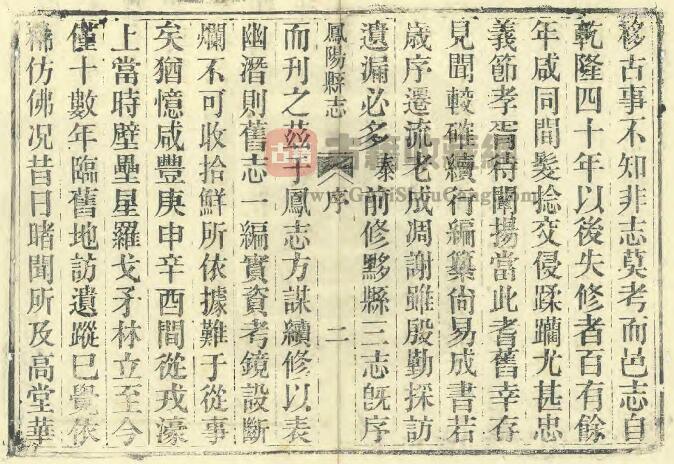 移古事不知非志莫考而邑志自
乾隆四十年以後失修者百有餘
年咸同間髮捻交侵蹂躪尤甚忠
義節孝胥待闡揚當此耆舊幸存
見聞較確續行編纂尚易成書若
歲序遷流老成凋謝雖殷勤採訪
遺漏必多泰前修黟縣三志旣序
鳳陽縣志
序
二
而刊之茲于鳳志方謀續修以表
幽潛則舊志一編實資考鏡設斷
爛不可收拾鮮所依據難于從事
矣猶憶咸豐庚申辛酉間從戎濠
上當時壁壘星羅戈矛林立至今
僅十數年臨舊地訪遺蹤已覺依
稀仿佛况昔日睹聞所及高堂華